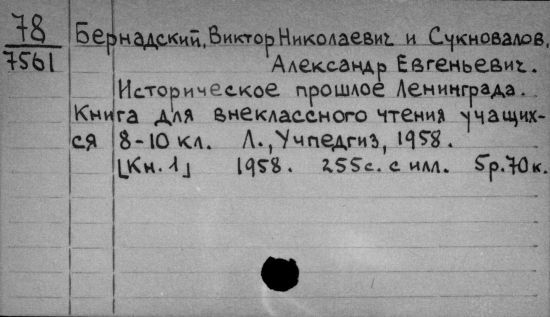 78
7561
Бернадский, Виктор Николаевич и Сукновалов,
Александр Евгеньевич.
Историческое прошлое Ленинграда.
Книга для внеклассного чтения учащих-
ся 8-10 кл. Л., Учпедгиз, 1958.
[Кн. 1] 1958. 255с. с илл. 5р.70к.